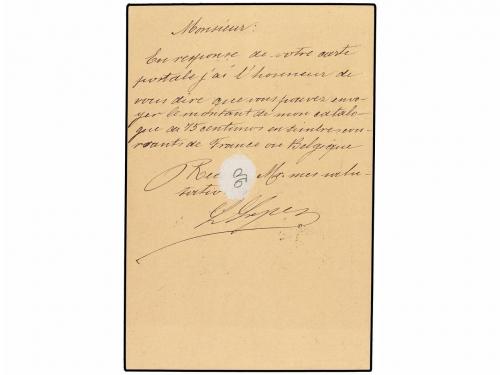 Monsieur:
En response de votre carte
postale j'ai l'honneur de
vous dire que vous pouvez envo-
yer le montant de mon catalo-
gue de 75 centimes en timbres cou-
rants de France ou Belgique
M. mes salu-